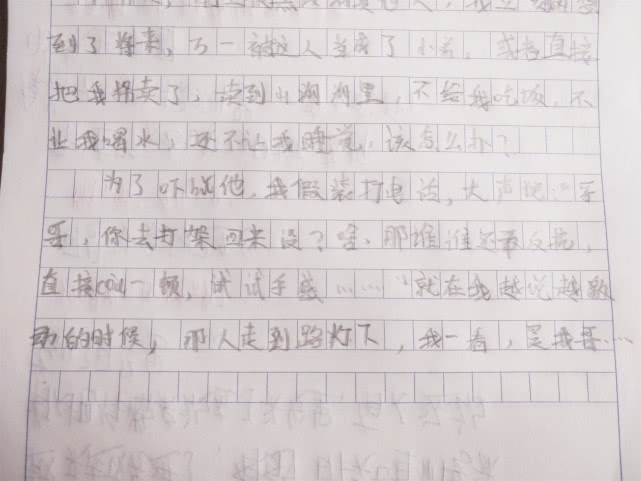 到了将来，万一被这人当成了小弟，或者直接
把我拐卖了，卖到山沟沟里，不给我吃饭，不
让我喝水，还不让我睡觉，该怎么办？
为了吓唬他，我假装打电话，大声说：“哥
哥，你去打架回来没？啥，那谁谁还敢反抗，
直接coú一顿，试试手感……”就在我越说越激
动的时候，那人走到路灯下，我一看，是我哥……